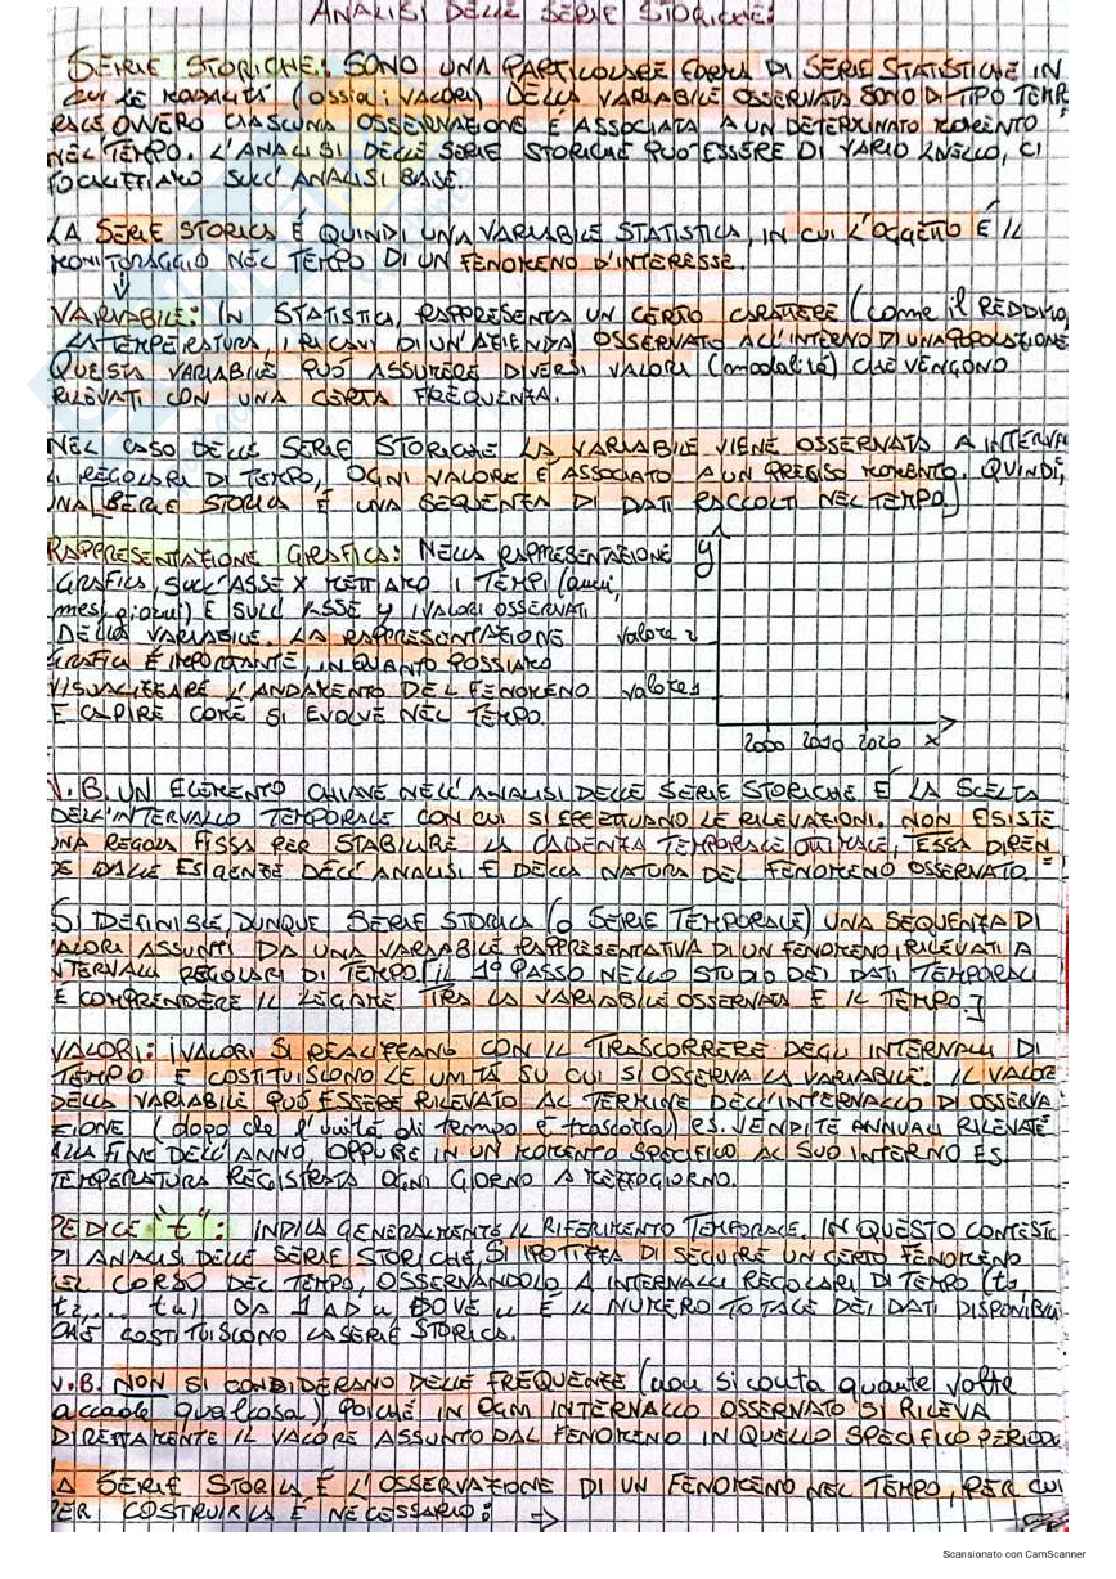 ANALISI DELLE SERIE STORICHE:
SERIE STORICHE: SONO UNA PARTICOLARE FORMA DI SERIE STATISTICHE IN
CUI LE MODALITÁ (ossia i VALORI) DELLA VARIABILE OSSERVATA SONO DI TIPO TEMPO
RALE, OVVERO CIASCUNA OSSERVAZIONE É ASSOCIATA A UN DETERMINATO MOMENTO
NEL TEMPO. L'ANALISI DELLE SERIE STORICHE PUÓ ESSERE DI VARIO LIVELLO, CI
FOCALIZZIAMO SULL'ANALISI BASE.
LA SERIE STORICA É QUINDI UNA VARIABILE STATISTICA, IN CUI L'OGGETTO É IL
MONITORAGGIO NEL TEMPO DI UN FENOMENO D'INTERESSE.
VARIABILE: IN STATISTICA, RAPPRESENTA UN CERTO CARATTERE (come il REDDITO,
LA TEMPERATURA, I RICAVI DI UN'AZIENDA) OSSERVATO ALL'INTERNO DI UNA POPOLAZIONE
QUESTA VARIABILE PUÓ ASSUMERE DIVERSI VALORI (modalitá) CHE VENGONO
RILEVATI CON UNA CERTA FREQUENZA.
NEL CASO DELLE SERIE STORICHE LA VARIABILE VIENE OSSERVATA A INTERVAL
LI REGOLARI DI TEMPO, OGNI VALORE É ASSOCIATO A UN PRECISO MOMENTO. QUINDI,
UNA [SERIE STORICA É UNA SEQUENZA DI DATI RACCOLTI NEL TEMPO.]
RAPPRESENTAZIONE GRAFICA: NELLA RAPPRESENTAZIONE
GRAFICA, SULL'ASSE X METTIAMO I TEMPI (anni,
mesi, giorni) E SULL'ASSE y I VALORI OSSERVATI
DELLA VARIABILE. LA RAPPRESENTAZIONE
GRAFICA É IMPORTANTE, IN QUANTO POSSIAMO
VISUALIZZARE L'ANDAMENTO DEL FENOMENO
E CAPIRE COME SI EVOLVE NEL TEMPO.
y
valore 2
valore 1
2000 2010 2020 x
N.B. UN ELEMENTO CHIAVE NELL'ANALISI DELLE SERIE STORICHE É LA SCELTA
DELL'INTERVALLO TEMPORALE CON CUI SI EFFETTUANO LE RILEVAZIONI. NON ESISTE
UNA REGOLA FISSA PER STABILIRE LA CADENZA TEMPORALE OTTIMALE, ESSA DIPEN
DE DALLE ESIGENZE DELL'ANALISI E DELLA NATURA DEL FENOMENO OSSERVATO.
SI DEFINISCE, DUNQUE SERIE STORICA (o SERIE TEMPORALE) UNA SEQUENZA DI
VALORI ASSUNTI DA UNA VARIABILE RAPPRESENTATIVA DI UN FENOMENO, RILEVATI A
INTERVALLI REGOLARI DI TEMPO. [il 1º PASSO NELLO STUDIO DEI DATI TEMPORALI
É COMPRENDERE IL LEGAME TRA LA VARIABILE OSSERVATA E IL TEMPO.]
VALORI: I VALORI SI REALIZZANO CON IL TRASCORRERE DEGLI INTERVALLI DI
TEMPO E COSTITUISCONO LE UNITÁ SU CUI SI OSSERVA LA VARIABILE. IL VALORE
DELLA VARIABILE PUÓ ESSERE RILEVATO AL TERMINE DELL'INTERVALLO DI OSSERVA
ZIONE (dopo che l'unitá di tempo é trascorsa) es. VENDITE ANNUALI RILEVATE
ALLA FINE DELL'ANNO, OPPURE IN UN MOMENTO SPECIFICO AL SUO INTERNO ES
TEMPERATURA REGISTRATA OGNI GIORNO A MEZZOGIORNO.
PEDICE "t": INDICA GENERALMENTE IL RIFERIMENTO TEMPORALE. IN QUESTO CONTESTO
DI ANALISI DELLE SERIE STORICHE, SI IPOTIZZA DI SEGUIRE UN CERTO FENOMENO
NEL CORSO DEL TEMPO, OSSERVANDOLO A INTERVALLI REGOLARI DI TEMPO (t1,
t2,... tn) DA 1 AD n, DOVE n É IL NUMERO TOTALE DEI DATI DISPONIBILI
CHE COSTITUISCONO LA SERIE STORICA.
N.B. NON SI CONSIDERANO DELLE FREQUENZE (non si conta quante volte
accade qualcosa), POICHÉ IN OGNI INTERVALLO OSSERVATO SI RILEVA
DIRETTAMENTE IL VALORE ASSUNTO DAL FENOMENO IN QUELLO SPECIFICO PERIODO.
LA SERIE STORICA É L'OSSERVAZIONE DI UN FENOMENO NEL TEMPO, PER CUI
PER COSTRUIRLA É NECESSARIO: →
Scansionato con CamScanner